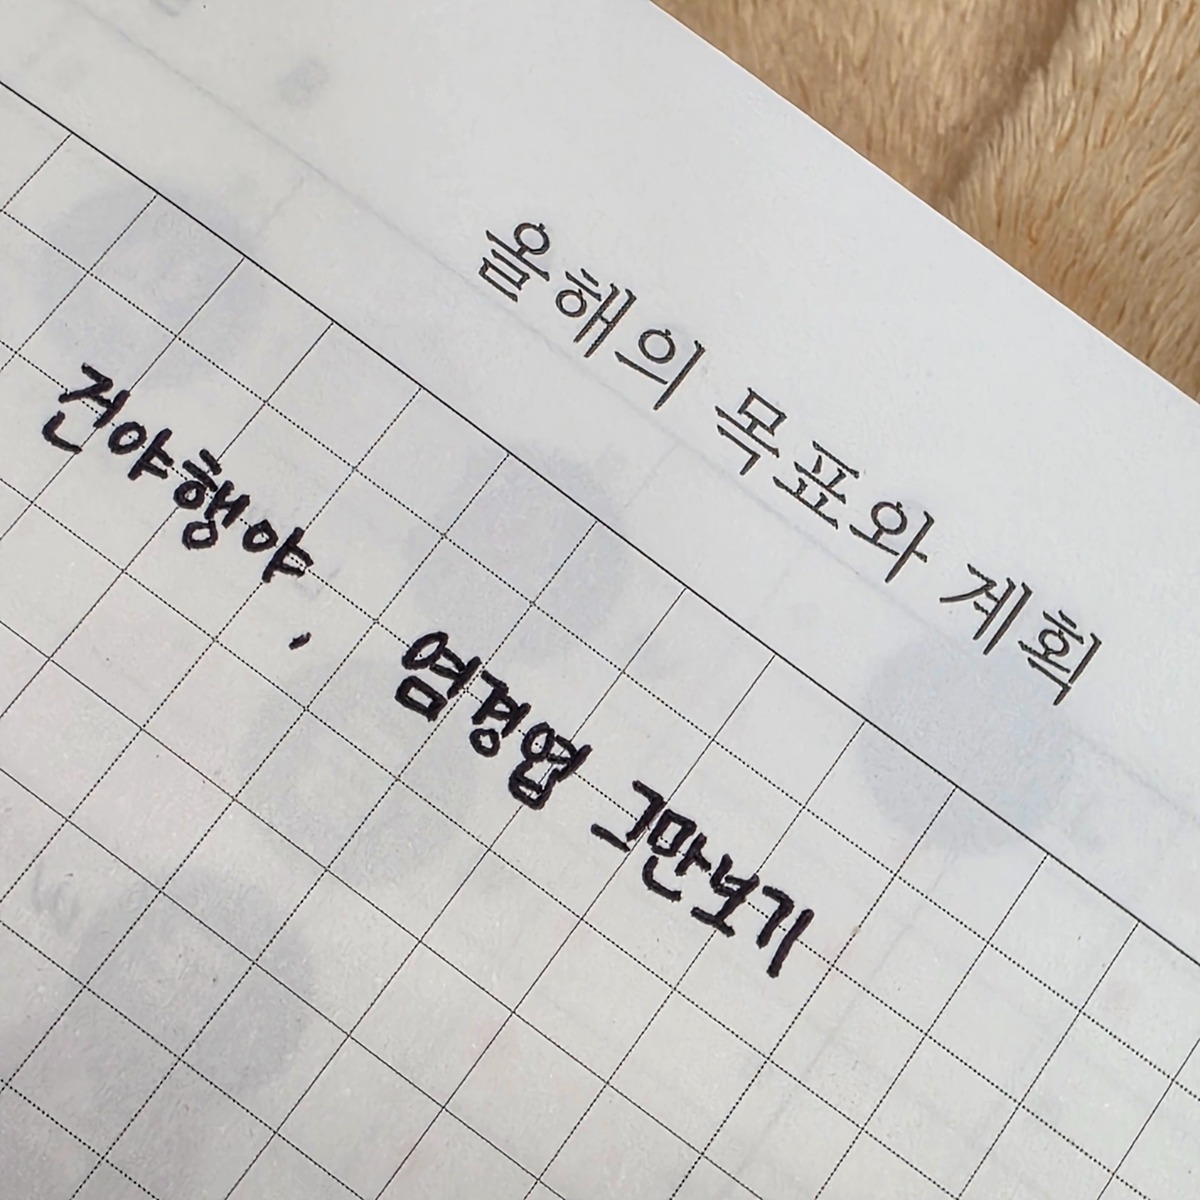 올해의 목표와 계획
건야행야, 염경엽 그만보기